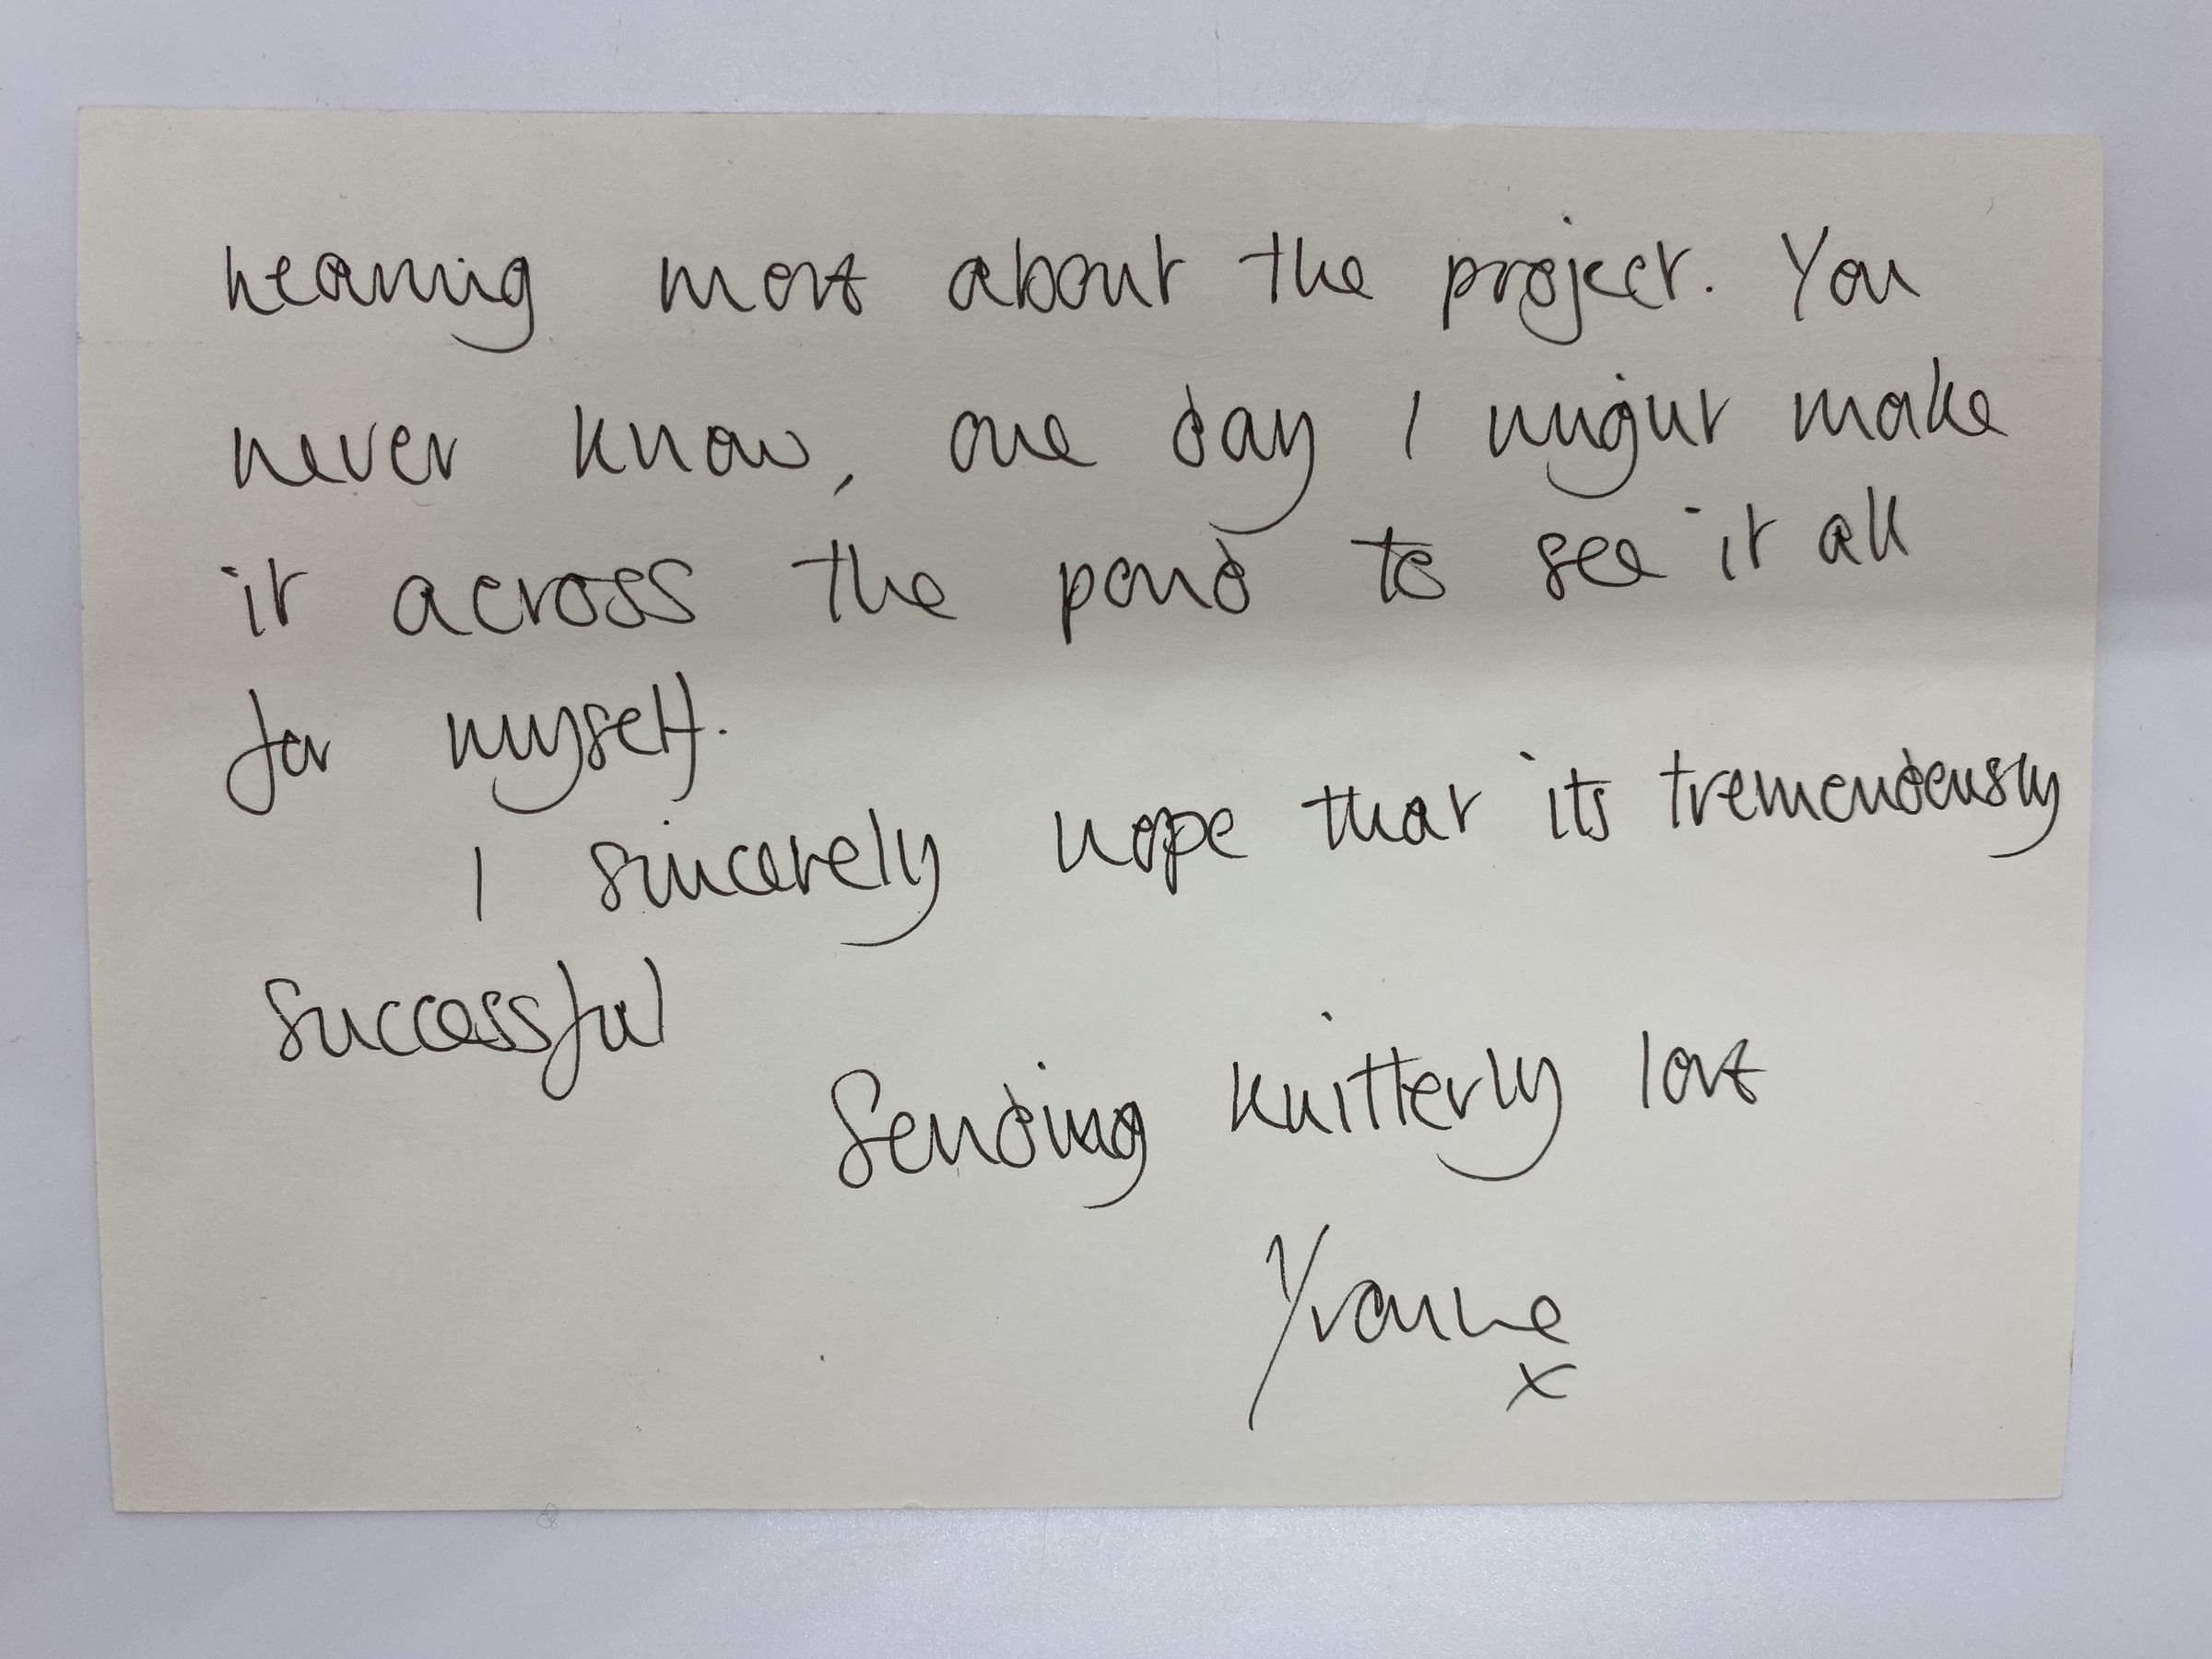 hearing more about the project. You
never know, one day I might make
it across the pond to see it all
for myself.
I sincerely hope that its tremendously
successful
Sending knitterly love
Yvonne
x